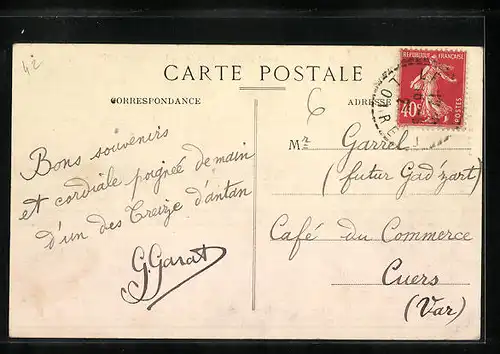 42
CARTE POSTALE
CORRESPONDANCE
ADRESSE
6
REPUBLIQUE FRANÇAISE
40c
POSTES
Bons souvenirs
et cordiale poignée de main
d'un des Treize d'antan
G. Garat
Mr Garrel
(futur Gad'zart)
Café du Commerce
Cuers
(Var)